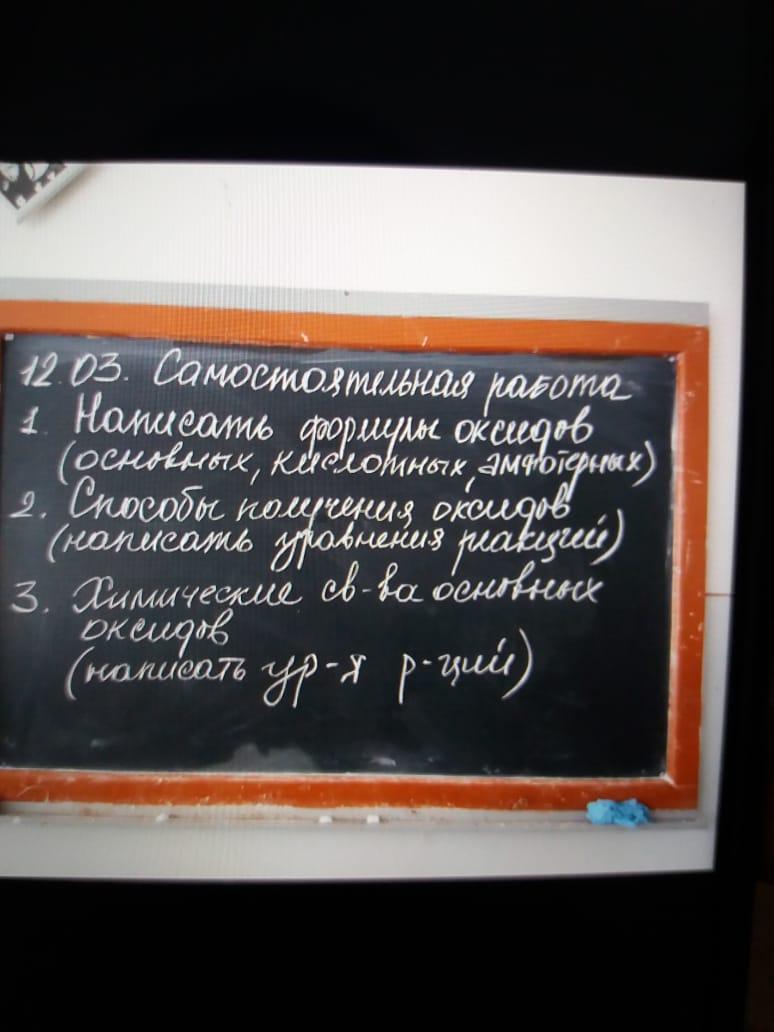 12.03. Самостоятельная работа
1. Написать формулы оксидов
(основных, кислотных, амфотерных)
2. Способы получения оксидов
(написать уравнения реакций)
3. Химические св-ва основных
оксидов
(написать ур-я р-ций)